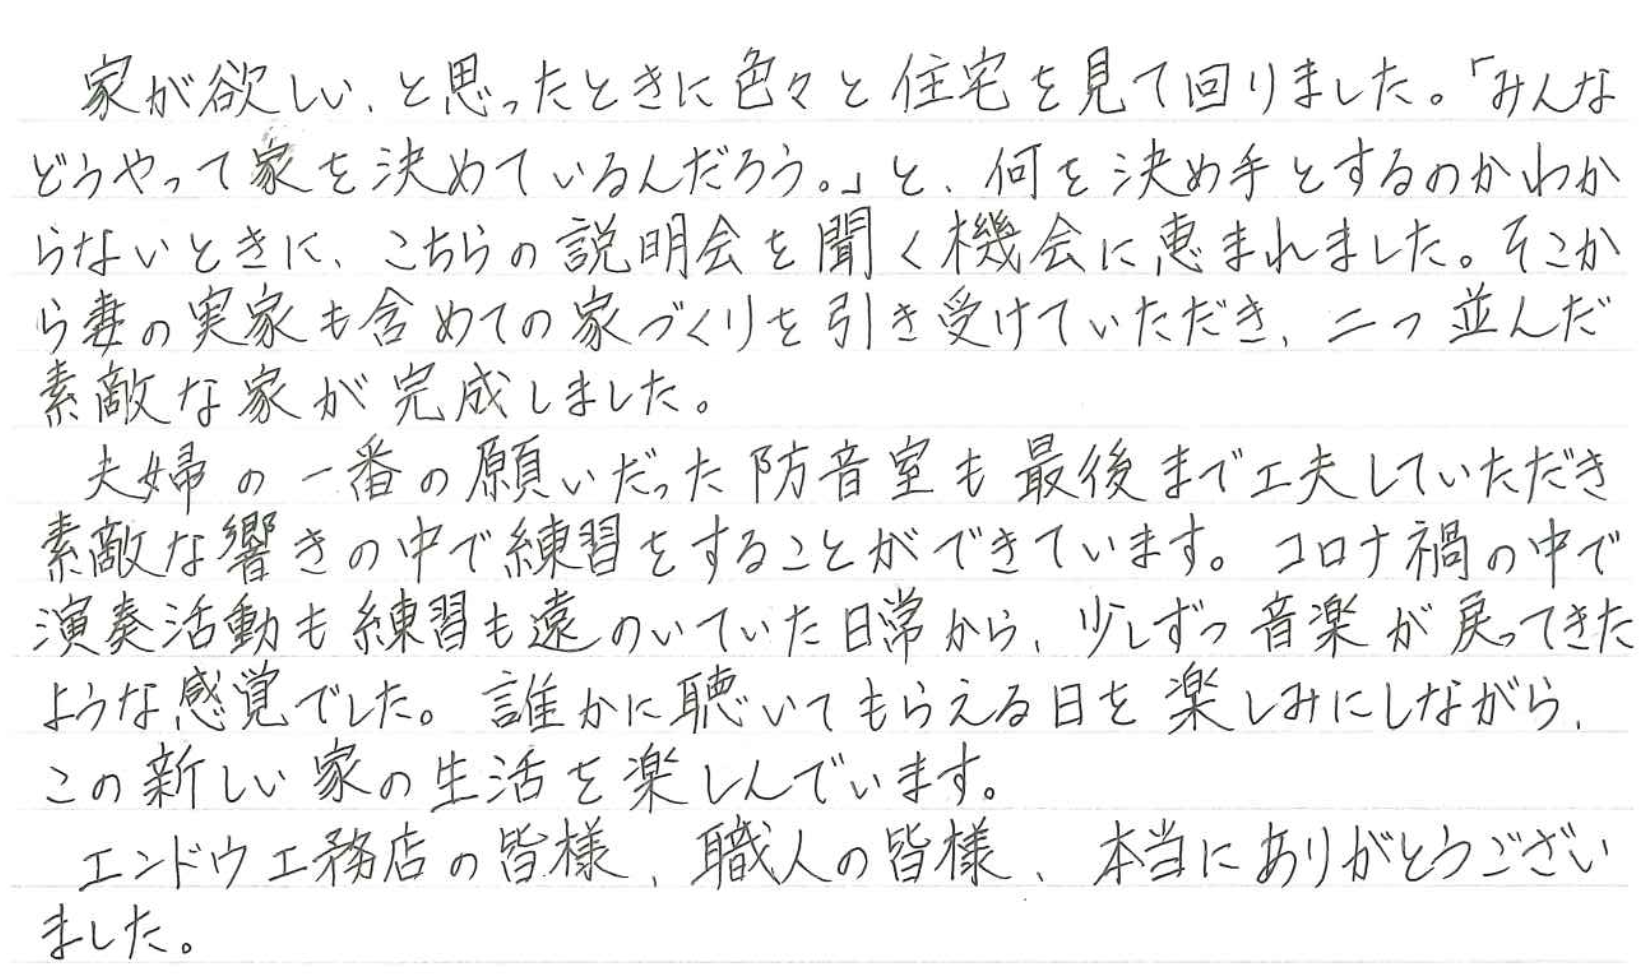 家が欲しい、と思ったときに色々と住宅を見て回りました。「みんな
どうやって家を決めているんだろう。」と、何を決め手とするのかわか
らないときに、こちらの説明会を聞く機会に恵まれました。そこか
ら妻の実家も含めての家づくりを引き受けていただき、二つ並んだ
素敵な家が完成しました。
夫婦の一番の願いだった防音室も最後まで工夫していただき
素敵な響きの中で練習をすることができています。コロナ禍の中で
演奏活動も練習も遠のいていた日常から、少しずつ音楽が戻ってきた
ような感覚でした。誰かに聴いてもらえる日を楽しみにしながら、
この新しい家の生活を楽しんでいます。
エンドウ工務店の皆様、職人の皆様、本当にありがとうござい
ました。